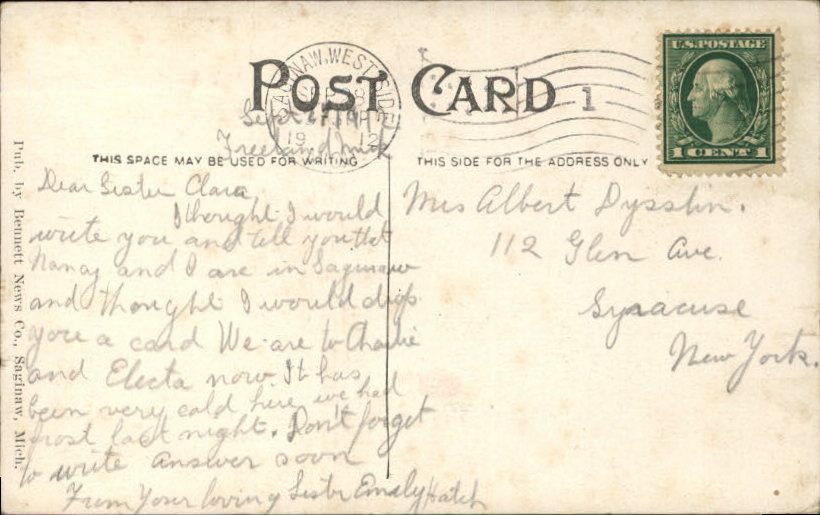 POST CARD
SAGINAW, WEST SIDE
SEP 28
1912
1
U.S. POSTAGE
1 CENT 1
Sept
Freeland Mich
THIS SPACE MAY BE USED FOR WRITING
THIS SIDE FOR THE ADDRESS ONLY
Pub. by Bennett News Co., Saginaw, Mich.
Dear Sister Clara
I thought I would
write you and tell you that
and I are in Saginaw
and thought I would drop
you a card We are to Charlie
and Electa now. It has
been very cold here we had
frost last night. Don't forget
to write answer soon
From Your loving Sister Emily Hatch
Mrs Albert
112 Glen Ave.
Syracuse
New York.